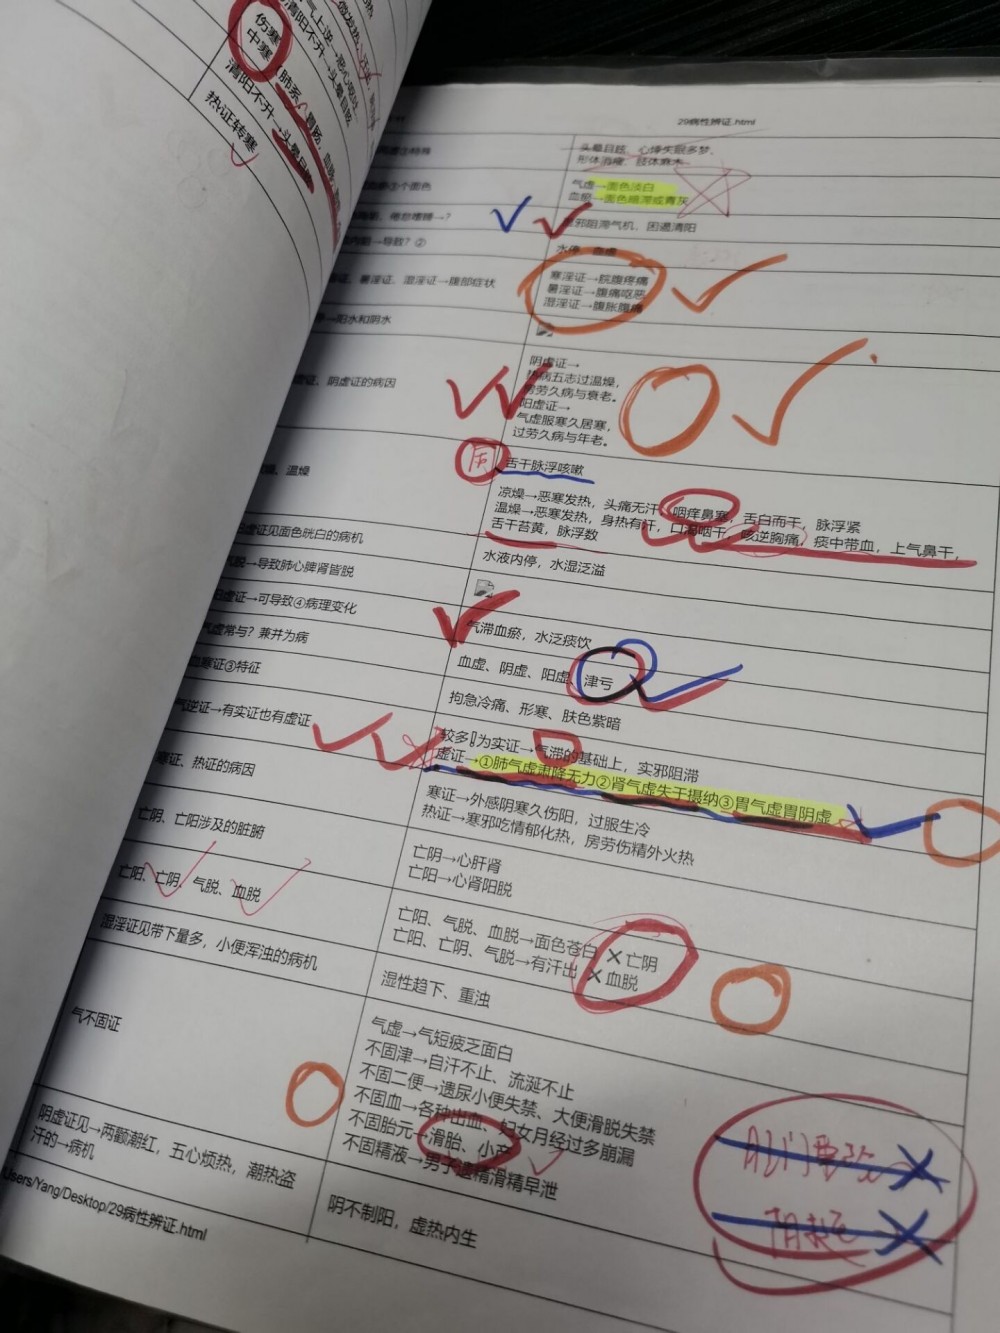 伤寒
中寒
清阳不升→头晕目眩
热证转寒
29病性辨证.html
头晕目眩、心悸失眠多梦、
形体消瘦、肢体麻木
气虚→面色淡白
血瘀→面色暗滞或青灰
倦怠嗜睡→?
邪阻滞气机、困遏清阳
→导致?②
暑淫证、湿淫证→腹部症状
寒淫证→脘腹疼痛
暑淫证→腹痛呕恶
湿淫证→腹胀腹痛
→阳水和阴水
证、阴虚证的病因
阴虚证→
热病五志过温燥，
房劳久病与衰老。
阳虚证→
气虚服寒久居寒，
过劳久病与年老。
温燥
舌干脉浮咳嗽
凉燥→恶寒发热，头痛无汗，咽痒鼻塞，舌白而干，脉浮紧
温燥→恶寒发热，身热有汗，口渴咽干，咳逆胸痛，痰中带血，上气鼻干，
舌干苔黄，脉浮数
阳虚证见面色㿠白的病机
水液内停，水湿泛溢
气脱→导致肺心脾肾皆脱
阳虚证→可导致④病理变化
气滞血瘀，水泛痰饮
气虚常与？兼并为病
血虚、阴虚、阳虚、津亏
血寒证③特征
拘急冷痛、形寒、肤色紫暗
气逆证→有实证也有虚证
较多为实证→气滞的基础上，实邪阻滞
虚证→①肺气虚肃降无力②肾气虚失于摄纳③胃气虚胃阴虚
寒证、热证的病因
寒证→外感阴寒久伤阳，过服生冷
热证→寒邪吃情郁化热，房劳伤精外火热
亡阴、亡阳涉及的脏腑
亡阴→心肝肾
亡阳→心肾阳脱
亡阳、亡阴、气脱、血脱
亡阳、气脱、血脱→面色苍白 ×亡阴
亡阳、亡阴、气脱→有汗出 ×血脱
湿淫证见带下量多，小便浑浊的病机
湿性趋下、重浊
气不固证
气虚→气短疲乏面白
不固津→自汗不止、流涎不止
不固二便→遗尿小便失禁、大便滑脱失禁
不固血→各种出血、妇女月经过多崩漏
不固胎元→滑胎、小产
不固精液→男子遗精滑精早泄
阴虚证见→两颧潮红，五心烦热，潮热盗
汗的→病机
阴不制阳，虚热内生
Users/Yang/Desktop/29病性辨证.html